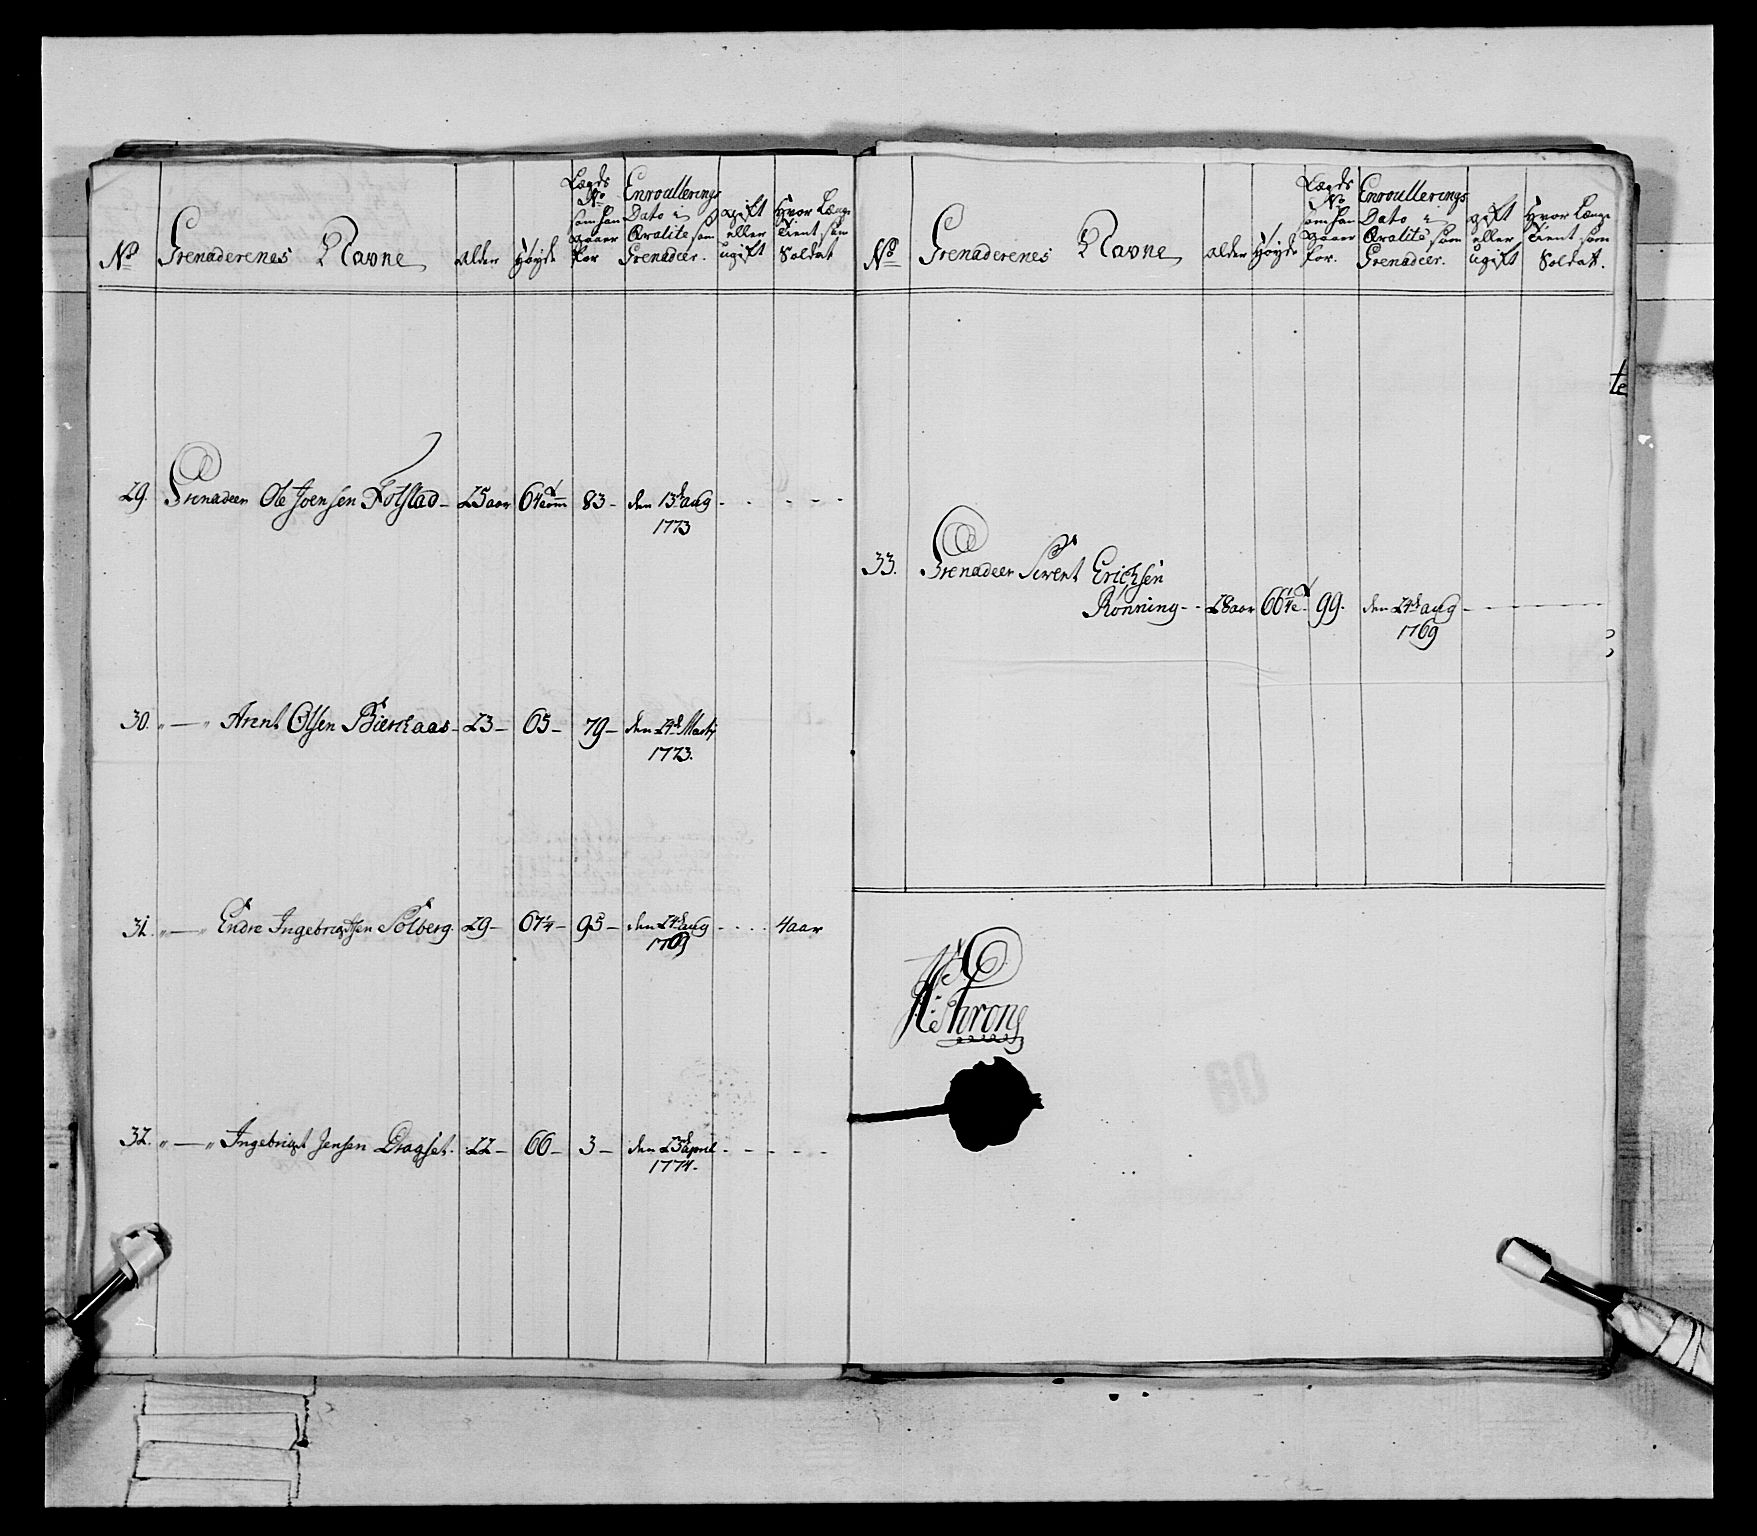 No Grenaderenes Navne alder Høyde Lægds No som han staaer for Enroullerings Dato i Qvalite som Grenadeer. gift eller ugift Hvor Længe Tient som Soldat
29. Grenadeer Ole Joensen Kolstad - 25 aar 64 83 - den 13de aug - - - -
1773
30. " — " Arent Olsen Bierkaas - 23 - 65 - 79 - den 24de Martj
1773.
31. " — " Endre Ingebrigtsen Solberg. 29 - 67¼ - 95 - den 24de aug - - - 4 aar
1769
32. " — " Ingebrigt Jensen Dragset. 22 - 66 - 3 - den 23de april - - - -
1774.
No Grenaderenes Navne alder Høyde Lægds No som han staaer for. Enroullerings Dato i Qvalite som Grenadeer. gift eller ugift Hvor Længe Tient som Soldat.
33. Grenadeer Sivert Erichsen
Rønning - - 28 aar 66¼ 99. den 24de aug - - - -
1769